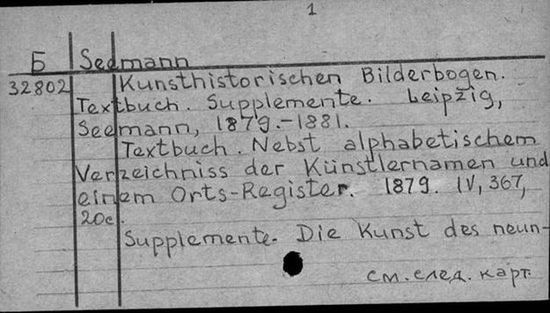 1
Б Seemann
32802 Kunsthistorischen Bilderbogen.
Textbuch. Supplemente. Leipzig,
Seemann, 1879.-1881.
Textbuch. Nebst alphabetischem
Verzeichniss der Künstlernamen und
einem Orts-Register. 1879. IV, 367,
20c.
Supplemente. Die Kunst des neun-
см. след. карт.